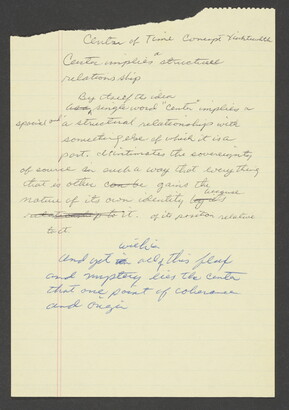 Center of Time Concept
Center implies a structural
relationship
By itself the idea
single word "Center" implies a
special & a structural relationships with
something else of which it is a
part. It intimates the sovereignty
of source in such a way that everything
that is other can be gains the
nature of its own identity by its because
relationship to it. of its position relative
to it
within
and yet in all this flux
and mystery lies the center
that one point of coherence
and origin